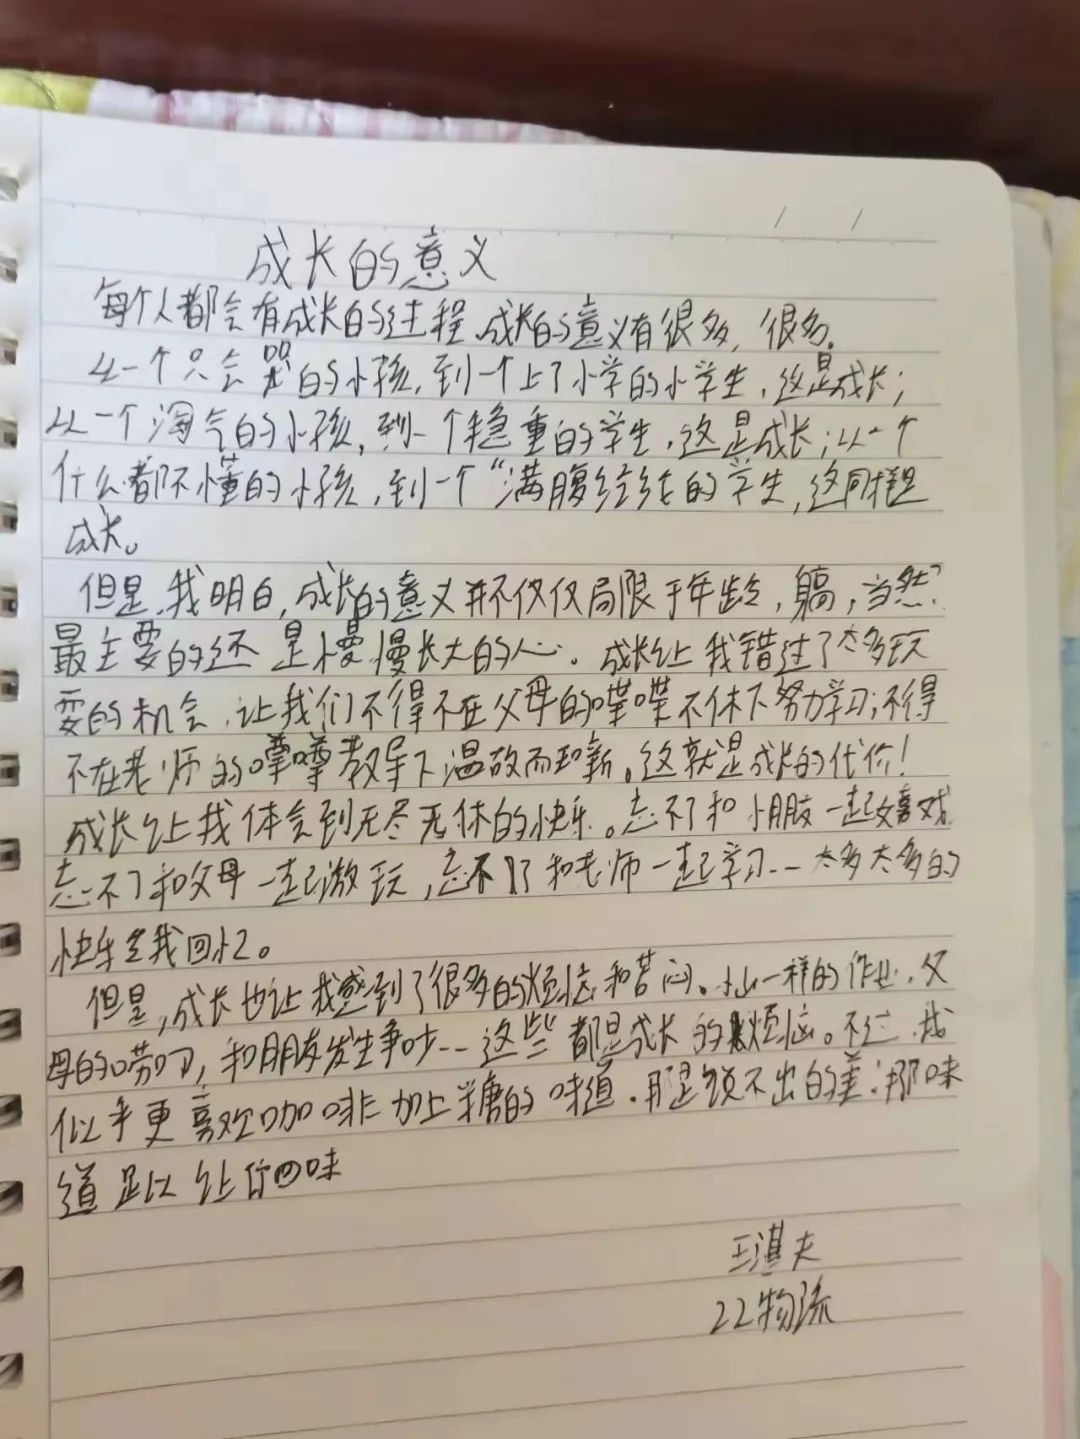 成长的意义
每个人都会有成长的过程.成长的意义有很多,很多。
从一个只会哭的小孩,到一个上了小学的小学生,这是成长;
从一个淘气的小孩,到一个稳重的学生,这是成长;从一个
什么都不懂的小孩,到一个“满腹经纶的学生,这同样是
成长。
但是,我明白,成长的意义并不仅仅局限于年龄,躯,当然,
最主要的还是慢慢长大的心。成长让我错过了太多玩
耍的机会,让我们不得不在父母的喋喋不休下努力学习;不得
不在老师的噂噂教导下温故而知新。这就是成长的代价!
成长让我体会到无尽无休的快乐。忘不了和小朋友一起嬉戏
忘不了和父母一起游玩,忘不了和老师一起学习...太多太多的
快乐 我回忆。
但是,成长也让我感到了很多的烦恼和苦闷。小山一样的作业,父
母的唠叨,和朋友发生争吵...这些都是成长的烦恼。不过,我
似乎更喜欢咖啡加上糖的味道.那是说不出的美;那味
道足以让你回味
王湛夫
22物流